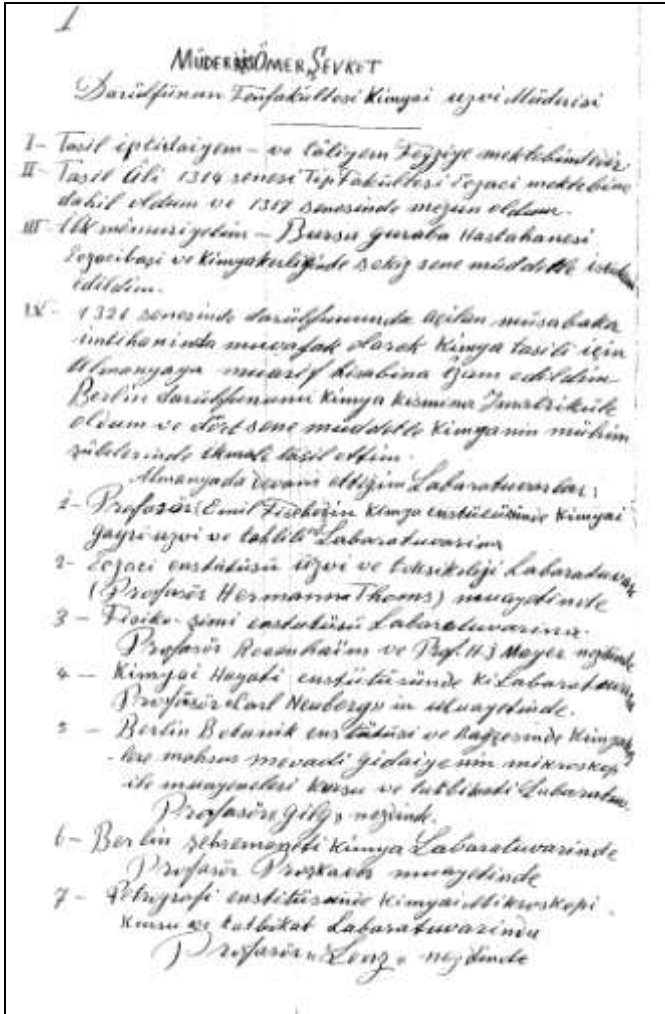 1
MÜDERRİS ÖMER ŞEVKET
Darülfünun Fenfakültesi Kimyai uzvi Müderisi
I- Tasil iptidaiyem - ve taliyem Feyziye mektebindedir
II- Tasil âli 1314 senesi Tip Fakültesi Eczaci mektebine
dahil oldum ve 1317 senesinde mezun oldum.
III- ilk memuriyetim - Bursa guraba Hastahanesi
Eczacibaşi ve Kimyakerliğinde sekiz sene müddetle
edildim.
IX- 1326 senesinde darülfünunda açilan müsabaka
imtihaninda muvafak olarak Kimya tasili için
Almanyaya muarif hisabina izam edildim
Berlin darülfünunu Kimya kismina Imatriküle
oldum ve dört sene müddetle Kimyanin mühim
şubelerinde ikmale tasil ettim.
Almanyada devam ettiğim Labaratuvarlar:
1- Profasör Emil Fischerin Kimya enstütüsünde Kimyai
gayri uzvi ve tahlili Labaratuvarina
2- Eczaci enstütüsü uzvi ve toksikoloji Labaratuvari
(Profasör Hermann Thoms) muayetinde
3- Fisiko-şimi enstütüsü Labaratuvarina.
Profasör Rosenhaim ve Prof. H.J Mayer nezdinde
4- Kimyai Hayati enstütüsünde ki Labaratuvarda
Profasör Carl Neuberg'in muayetinde.
5- Berlin Botanik enstütüsi ve Bagçesinde Kimyager
-lere mahsus mevadi gidaiyenin mikroskop
ile muayeneleri kursu ve tatbikati Labaratuv.
Profasör "Gilg" nezdinde.
6- Berlin şehremaneti Kimya Labaratuvarinde
Profasör Proskauer muayetinde
7- Petrografi enstitüsünde Kimyai Mikroskopi
Kursu ve tatbikat Labaratuvarinda
Profasör "Lenz" nezdinde